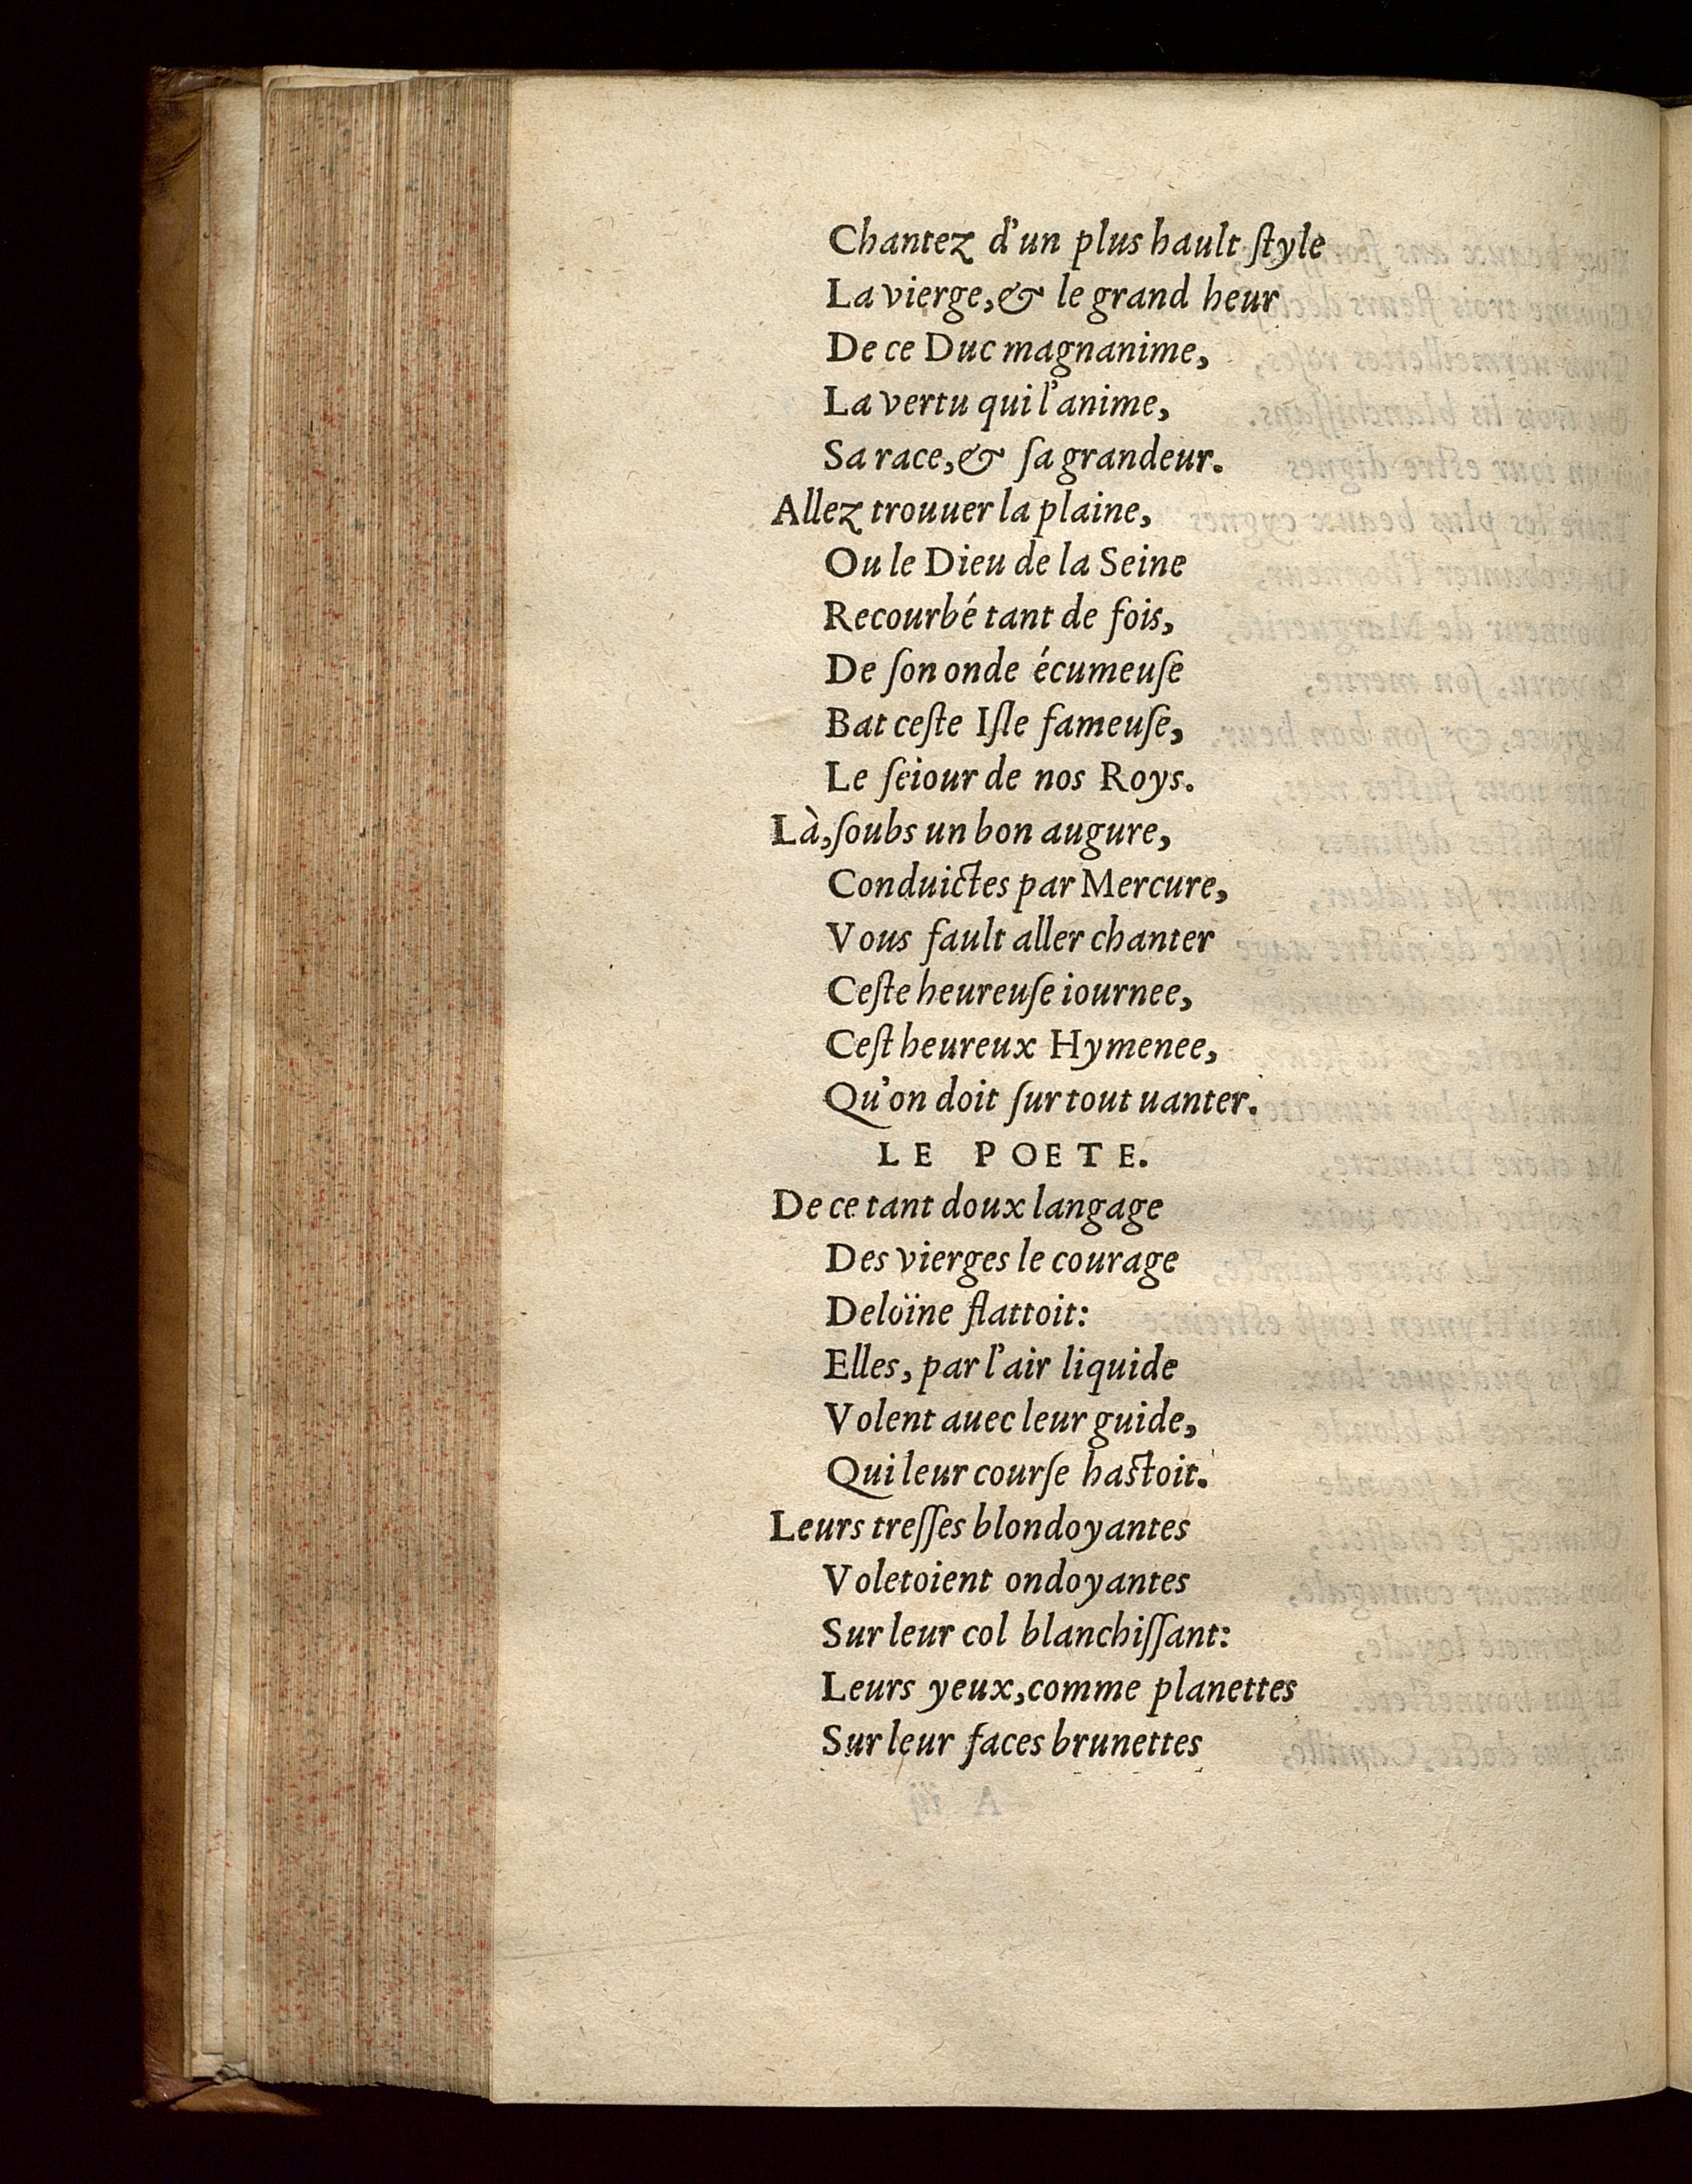 Chantez d'un plus hault ſtyle
La vierge, & le grand heur
De ce Duc magnanime,
La vertu qui l'anime,
Sa race, & ſa grandeur.
Allez trouuer la plaine,
Ou le Dieu de la Seine
Recourbé tant de fois,
De ſon onde écumeuſe
Bat ceſte Iſle fameuſe,
Le ſeiour de nos Roys.
Là, ſoubs un bon augure,
Conduictes par Mercure,
Vous fault aller chanter
Ceſte heureuſe iournee,
Ceſt heureux Hymenee,
Qu'on doit ſur tout uanter.
LE POETE.
De ce tant doux langage
Des vierges le courage
Deloïne flattoit:
Elles, par l'air liquide
Volent auec leur guide,
Qui leur courſe haſtoit.
Leurs treſſes blondoyantes
Voletoient ondoyantes
Sur leur col blanchiſſant:
Leurs yeux, comme planettes
Sur leur faces brunettes